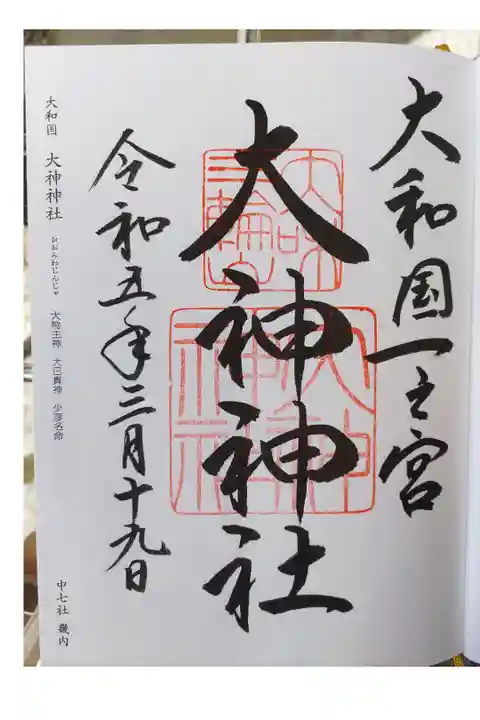 大和国一之宮
大神神社
令和五年三月十九日
大和国 大神神社 おおみわじんじゃ 大物主神 大己貴神 少彦名命
中七社 畿内
大神
神社